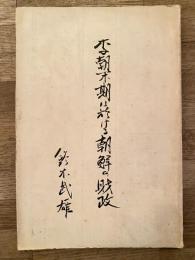 李朝末期に於ける朝鮮の財政
鈴木武雄